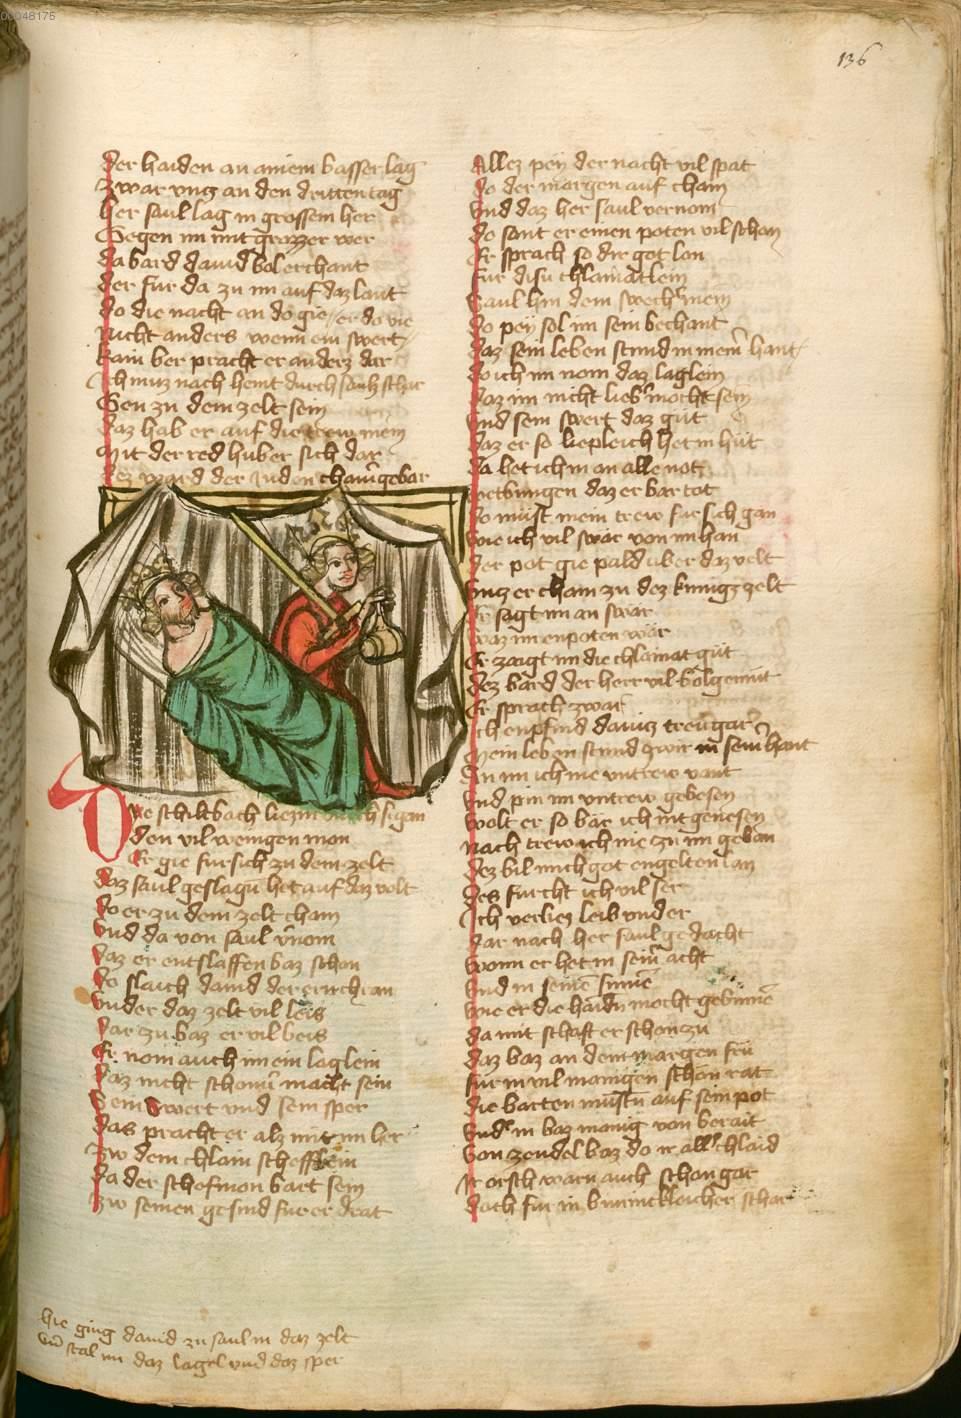 00048175
136
der haiden an ainem basser lag
zwar vnz an den dritten tag
her saul lag in grossem her
Gegen im mit grozzer wer
da bard dauid bol erchant
der fur da zu im auf daz lant
do die nacht an do gie er do vie
nicht anders wenn ein swert
kain ber pracht er anderz dar
Ich muz nach heint durch sauls schar
Gen zu dem zelt sein
daz hab er auf die trew mein
Mit der red huber sich dar
dez ward der Juden chaim gebar
Die schiltbach liezzn sigan
den vil weingen mon
Er gie fursich zu dem zelt
daz saul geslagn het auf daz velt
do er zu dem zelt cham
vnd da von saul v̄nom
daz er entslaffen baz schon
do slaich dauid der
vnder daz zelt vil leis
dar zu baz er vil beis
Er nom auch im ein laglein
daz nicht schonr̄ macht sein
Sein Swert vnd sein sper
das pracht er alz mit im her
Zw dem chlain scheffleim
da der schefmon bart sein
Zw seinen gesind fur er drat
Allez pey der nacht vil spat
do der margen auf cham
vnd daz her saul vernom
do sant er einen poten vil schon
Er sprach so dir got lon
fur disu chlainatlein
Saul hin dem swecher mein
do pey sol im sein bechant
daz sein leben stund in mein̄ hant
do ich im nom daz laglein
daz im nicht lieber mocht sein
vnd sein swert daz gut
daz er so liepleich het in hut
da het ich in an alle not
petbungen daz er bar tot
do must mein trew fur sich gan
wie ich vil swar von im han
der pot gie pald uber daz velt
vntz er cham zu dez kunigz zelt
Er sagt im an swar
waz im enpoten wār
Er zaigt im die chlainat gut
dez bard der herr vil bolgemut
Er sprach zwar
Ich enpfind dauitz trew gar
Mein leben stund zwir in sein̄ hant
An im ich nie vntrew vant
vnd pin im vntrew gebesen
wolt er so bar ich nit genesen
nach trew ich nie zu im geban
dez bil mich got engelten lan
des furcht ich vil ser
Ich verliez leib vnd er
dar nach her saul gedacht
wonn er het in sein̄ acht
vnd in seinē sinnē
wie er die haidn mocht gebinnē
da mit schaft er schon zu
daz baz an dem margen fru
fur in vil manigen schon rat
die barten mustn auf sein pot
vnd in baz manig von berait
Von zendel baz do ir all chlaid
Ir orsch warn auch schon gar
dach fur in kunickleicher schar
hie ging dauid zu saul in daz zelt
vn̄ stal im daz lagel vnd daz sper